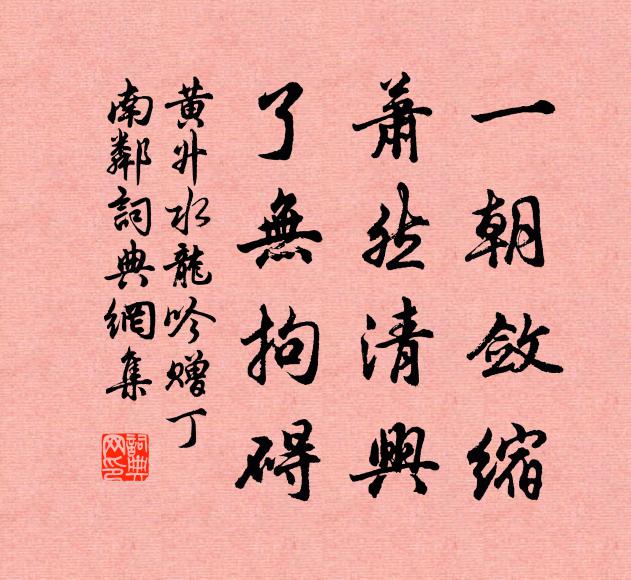 一朝斂縮
蕭然清興
了無拘碍
黄升水龍吟贈丁
南鄰詞典網集
詞典网印